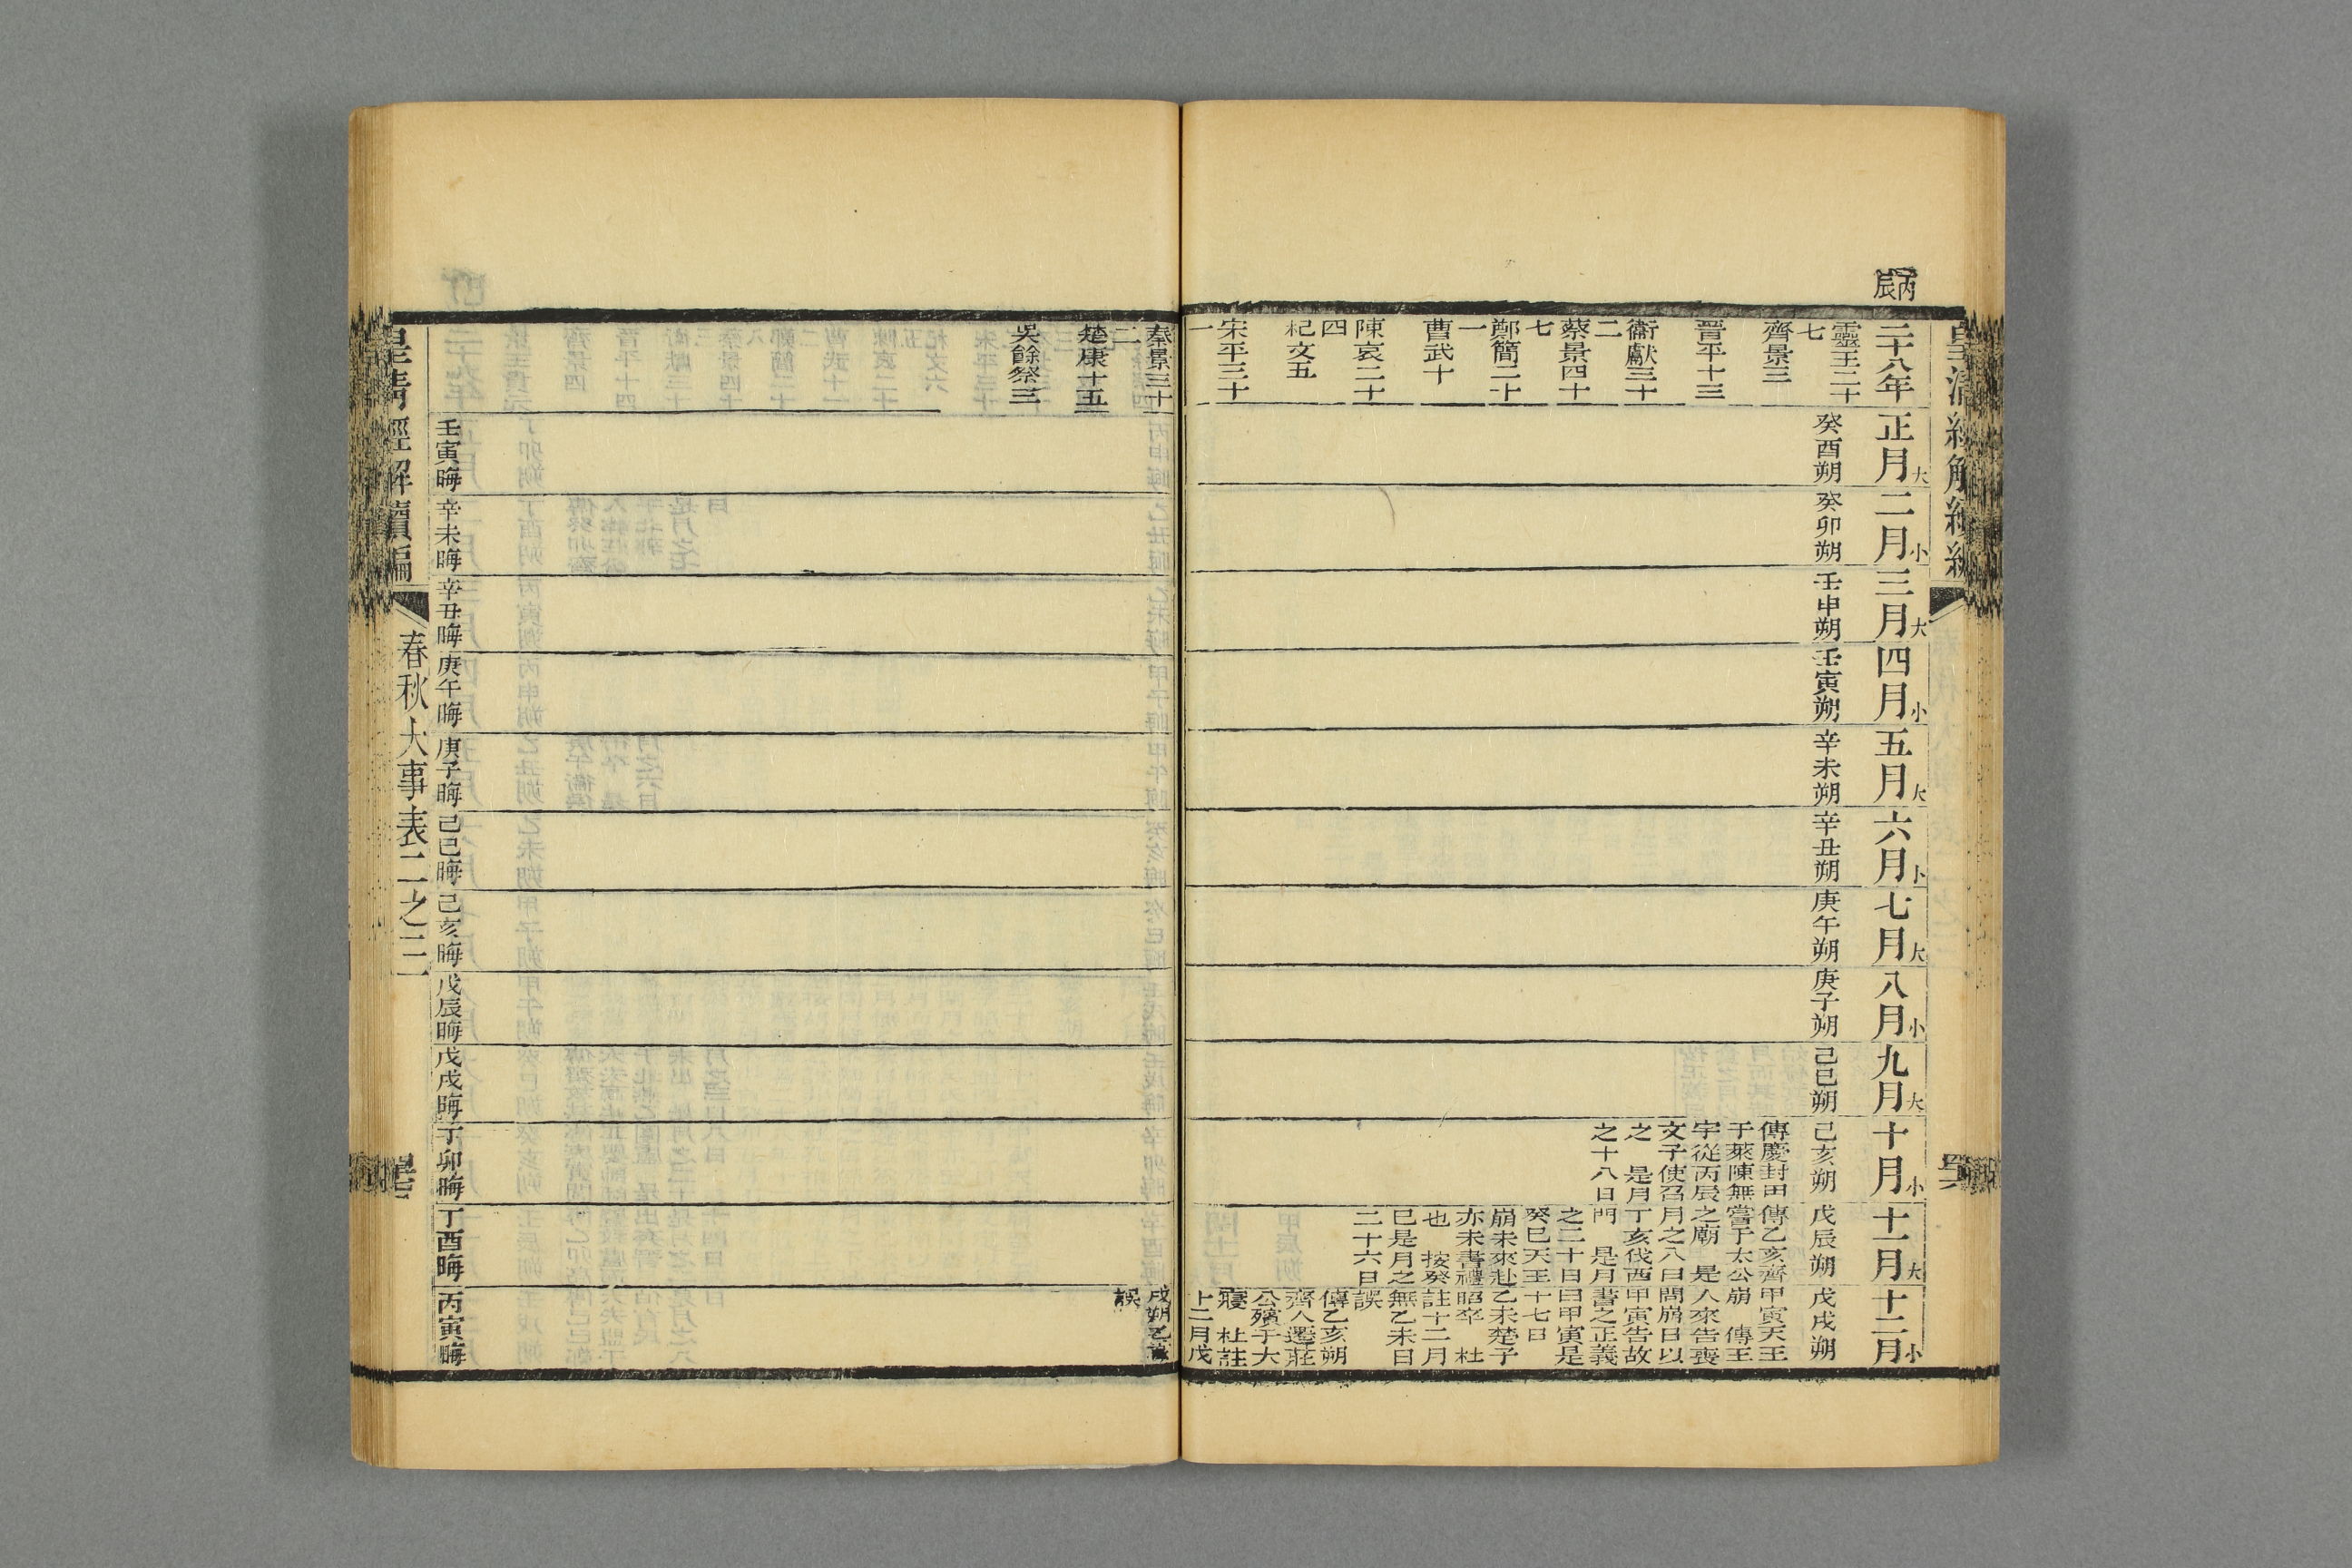 丙辰
皇清經解續編
二十八年
正月大
二月小
三月大
四月小
五月大
六月小
七月大
八月小
九月大
十月小
十一月大
十二月小
靈王二十
七
齊景三
晉平十三
衞獻三十
二
蔡景四十
七
鄭簡二十
一
曹武十
陳哀二十
四
杞文五
宋平三十
一
秦景三十
二
楚康十五
吳餘祭三
癸酉朔
癸卯朔
壬申朔
壬寅朔
辛未朔
辛丑朔
庚午朔
庚子朔
己巳朔
己亥朔
傳慶封田
于萊陳無
宇從丙辰
文子使召
之　是月
之十八日
戊辰朔
傳乙亥齊
嘗于太公
之廟　是
月之八日
丁亥伐西
門　是月
之二十日
癸巳天王
崩未來赴
亦未書禮
也　按癸
巳是月之
二十六日
戊戌朔
甲寅天王
崩　傳王
人來告喪
問崩日以
甲寅告故
書之正義
曰甲寅是
十七日
乙未楚子
昭卒　杜
註十二月
無乙未日
誤
傳乙亥朔
齊人遷莊
公殯于大
寢　杜註
十二月戊
戌朔乙
誤
壬寅晦
辛未晦
辛丑晦
庚午晦
庚子晦
己巳晦
己亥晦
戊辰晦
戊戌晦
丁卯晦
丁酉晦
丙寅晦
皇清經解續編
春秋大事表二之三